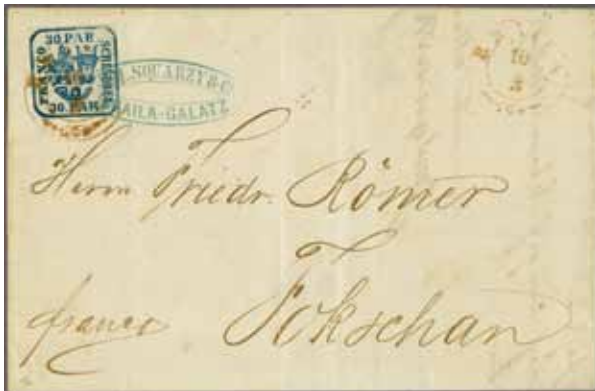 30 PAR
FRANCO
SCRISOREI
30. PAR
SQUARZY & C
AILA-GALATZ
10
3
Herrn Friedr. Römer
Fokschan
franco